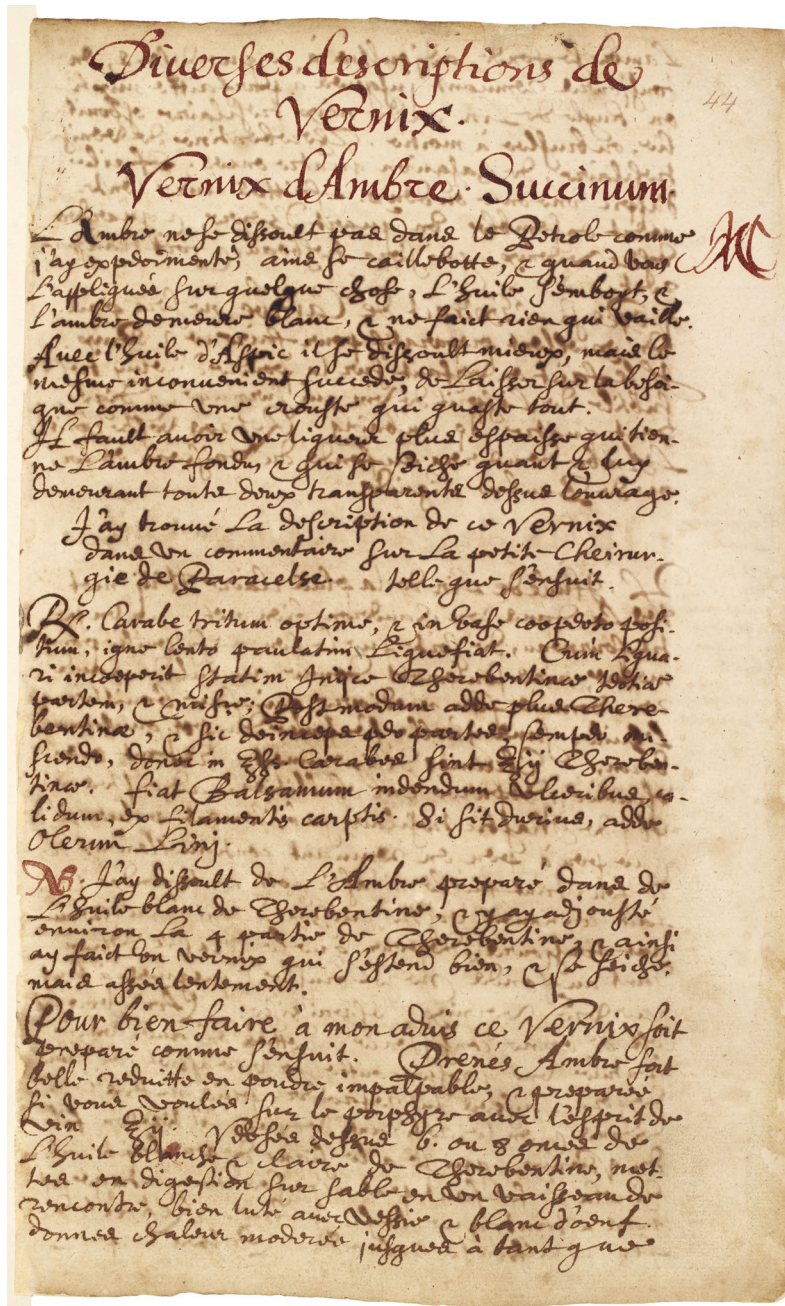 Diverses descriptions de
Vernix.
44
Vernix d'Ambre. Succinum.
L'Ambre ne se dissoult pas dans le Petrole comme
j'ay expérimenté, ains se caillebotte, & quand vous
l'appliqués sur quelque chose, L'huile s'emboyt, &
l'ambre demeure blanc, & ne faict rien qui vaille.
Avec l'huile d'Aspic il se dissoult mieux, mais le
mesme inconvenient succede, de Laisser sur la besoi-
gne comme une crouste qui gaste tout.
Il fault avoir une liqueur plus espaisse qui tien-
ne L'ambre fondu, & qui se seiche quant & luy
demeurant touts deux transparents dessus l'ouvrage.
J'ay trouvé La description de ce Vernix
dans un commentaire sur La petite Cheirur-
gie de Paracelse telle que s'ensuit.
Rx. Carabe tritum optime, & in vase cooperto posi-
tum, igne lento paulatim Liquefiat. Cum liqua-
ri inceperit statim Injice Therebentinæ tertiæ
partem, & misce; Postmodum adde plus There
bentinæ, & sic deinceps per partes, semper mi-
scendo, donec in ℥ss Carabes sint ℥ij Thereben-
tinæ. fiat Balsamum indendum ulceribus, ca-
lidum, ex filamentis carptis. Si sit durius, adde
Oleum Lini.
NB. J'ay dissoult de L'Ambre preparé dans de
L'huile blanc de Therebentine, & y ay adjousté
environ La 4 partie de Therebentine, & ainsi
ay faict un vernix qui s'estend bien, & se seiche,
mais assés lentement.
Pour bien faire à mon advis ce Vernix soit
preparé comme s'ensuit. Prenés Ambre fort
belle reduitte en poudre impalpable, & preparée
si vous voules sur le porphyre avec l'esprit de
vin ℥ij. Versés dessus 6. ou 8 onces de
L'huile blanche & claire de Therebentine, met-
tes en digestion sur sable en un vaisseau de
rencontre, bien luté avec vessie & blanc d'oeuf.
donnes chaleur moderee jusques à tant que